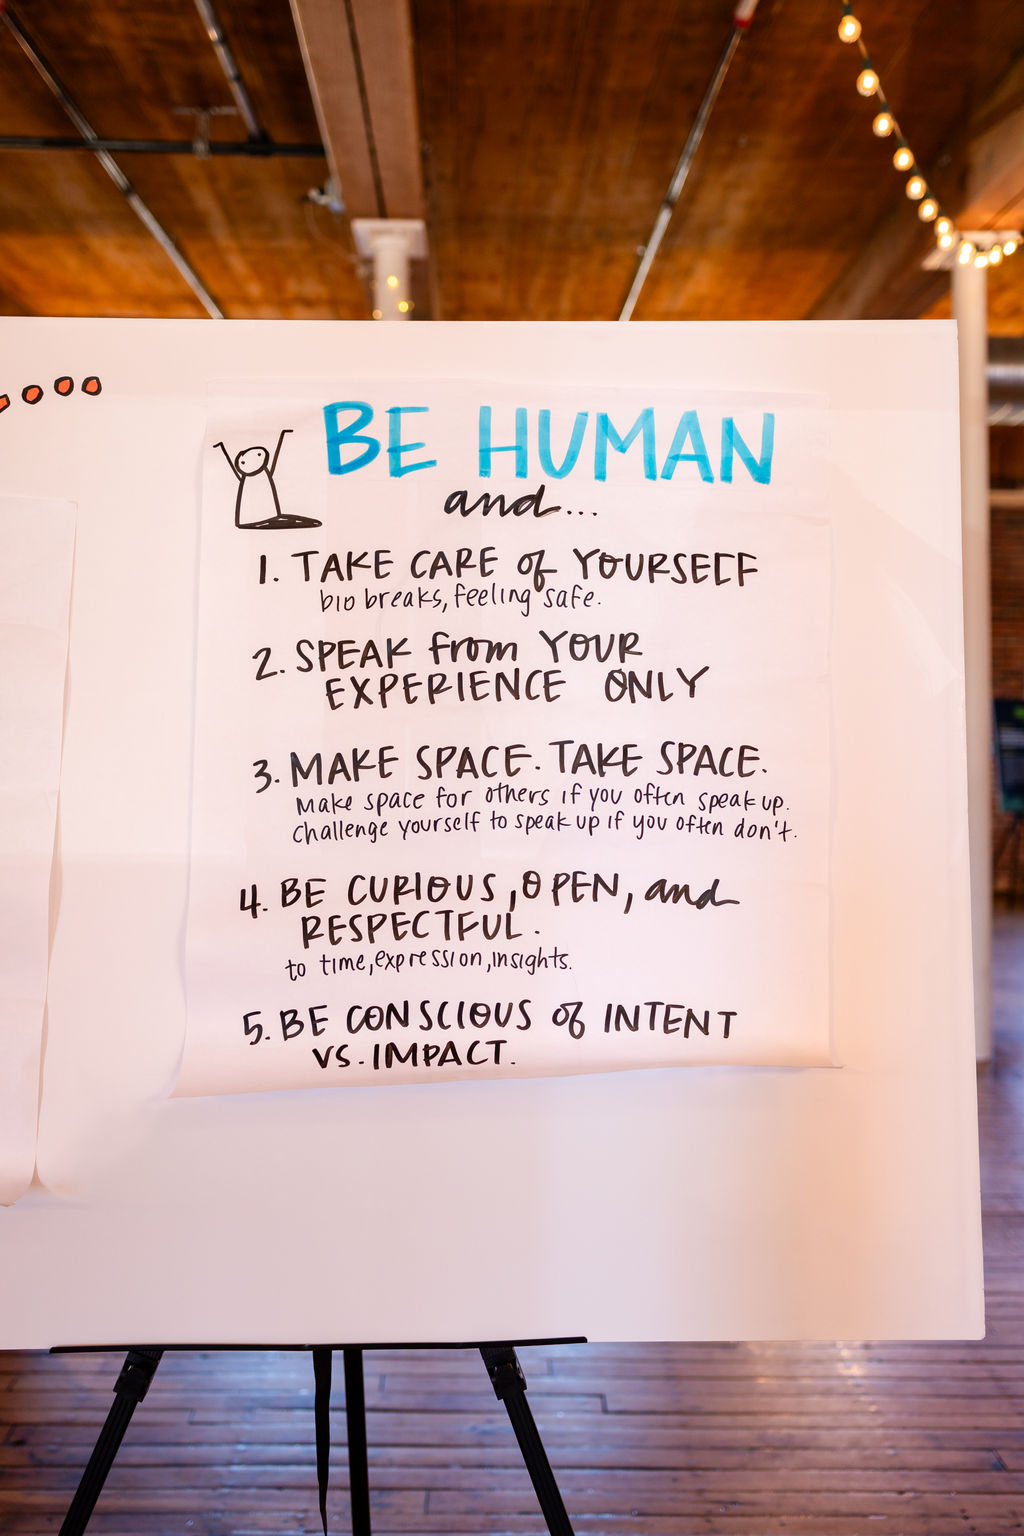 BE HUMAN
and...
1. TAKE CARE of YOURSELF
bio breaks, feeling safe.
2. SPEAK from YOUR
EXPERIENCE ONLY
3. MAKE SPACE. TAKE SPACE.
Make space for others if you often speak up.
Challenge yourself to speak up if you often don't.
4. BE CURIOUS, OPEN, and
RESPECTFUL.
to time, expression, insights.
5. BE CONSCIOUS of INTENT
VS. IMPACT.